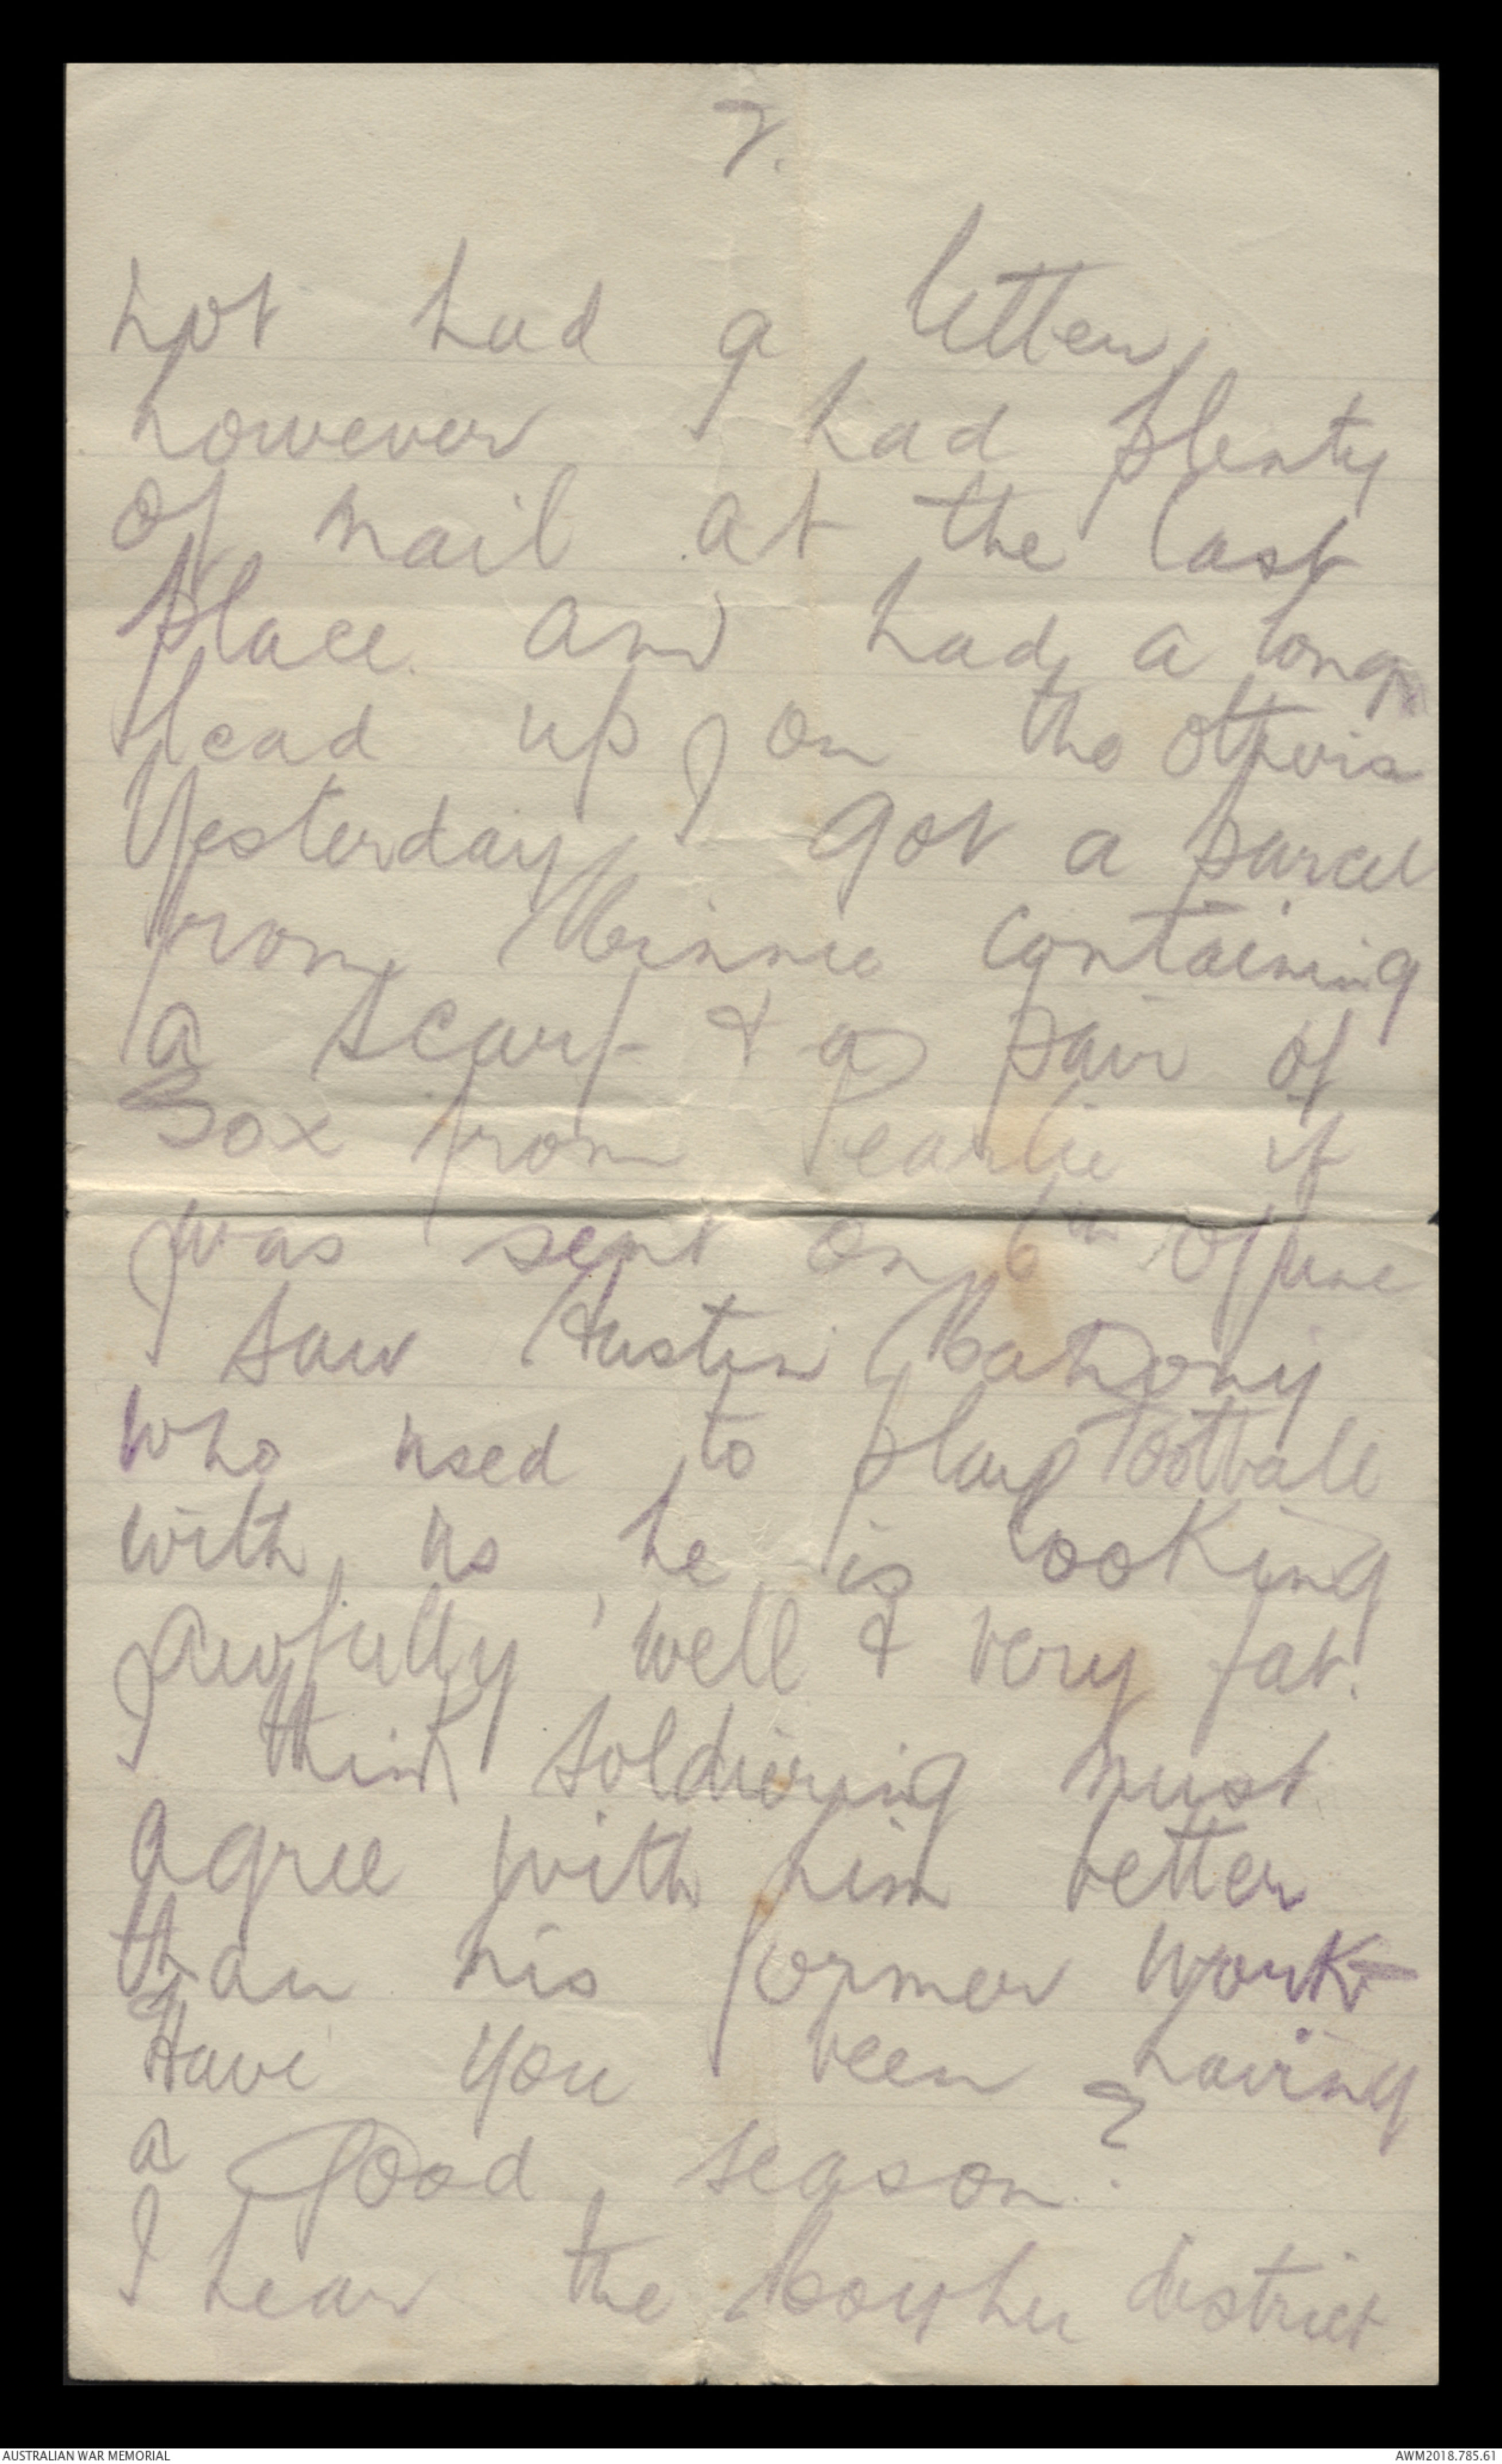 7.
not had a letter
however I had plenty
of mail at the last
place and had a long
lead up on the others
Yesterday I got a parcel
from Minnie containing
a scarf & a pair of
Sox from Pearlie it
was sent on 6th of June
I saw Austin Mahony
who used to play Football
with us he is looking
awfully well & very fat.
I think soldiering must
agree with him better
than his former work
Have you been having
a Good season?
I hear the district
AUSTRALIAN WAR MEMORIAL
AWM2018.785.61